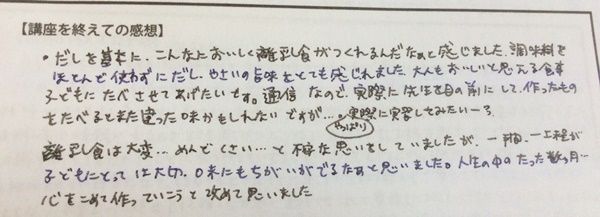 【講座を終えての感想】
・だしを基本に、こんなにおいしく離乳食がつくれるんだなぁと感じました。調味料を
ほとんど使わずにだし、やさいの旨味をとても感じれました。大人もおいしいと思える食事
子どもにたべさせてあげたいです。通信なので、実際に先生を目の前にして、作ったもの
をたべるとまた違った味かもしれないですが…。やっぱり実際に実習してみたいーろ
離乳食は大変…めんどくさい…と不安な思いをしていましたが、一時、一工程が
子どもにとっては大切。味にもちがいがでるなぁと思いました。人生の中のたった数ヶ月…
心をこめて作っていこうと改めて思いました